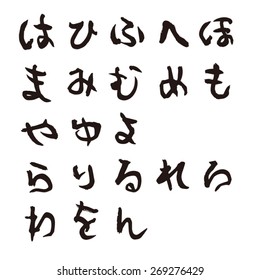 はひふへほ
まみむめも
やゆよ
らりるれろ
わをん
shutterstock.com · 269276429